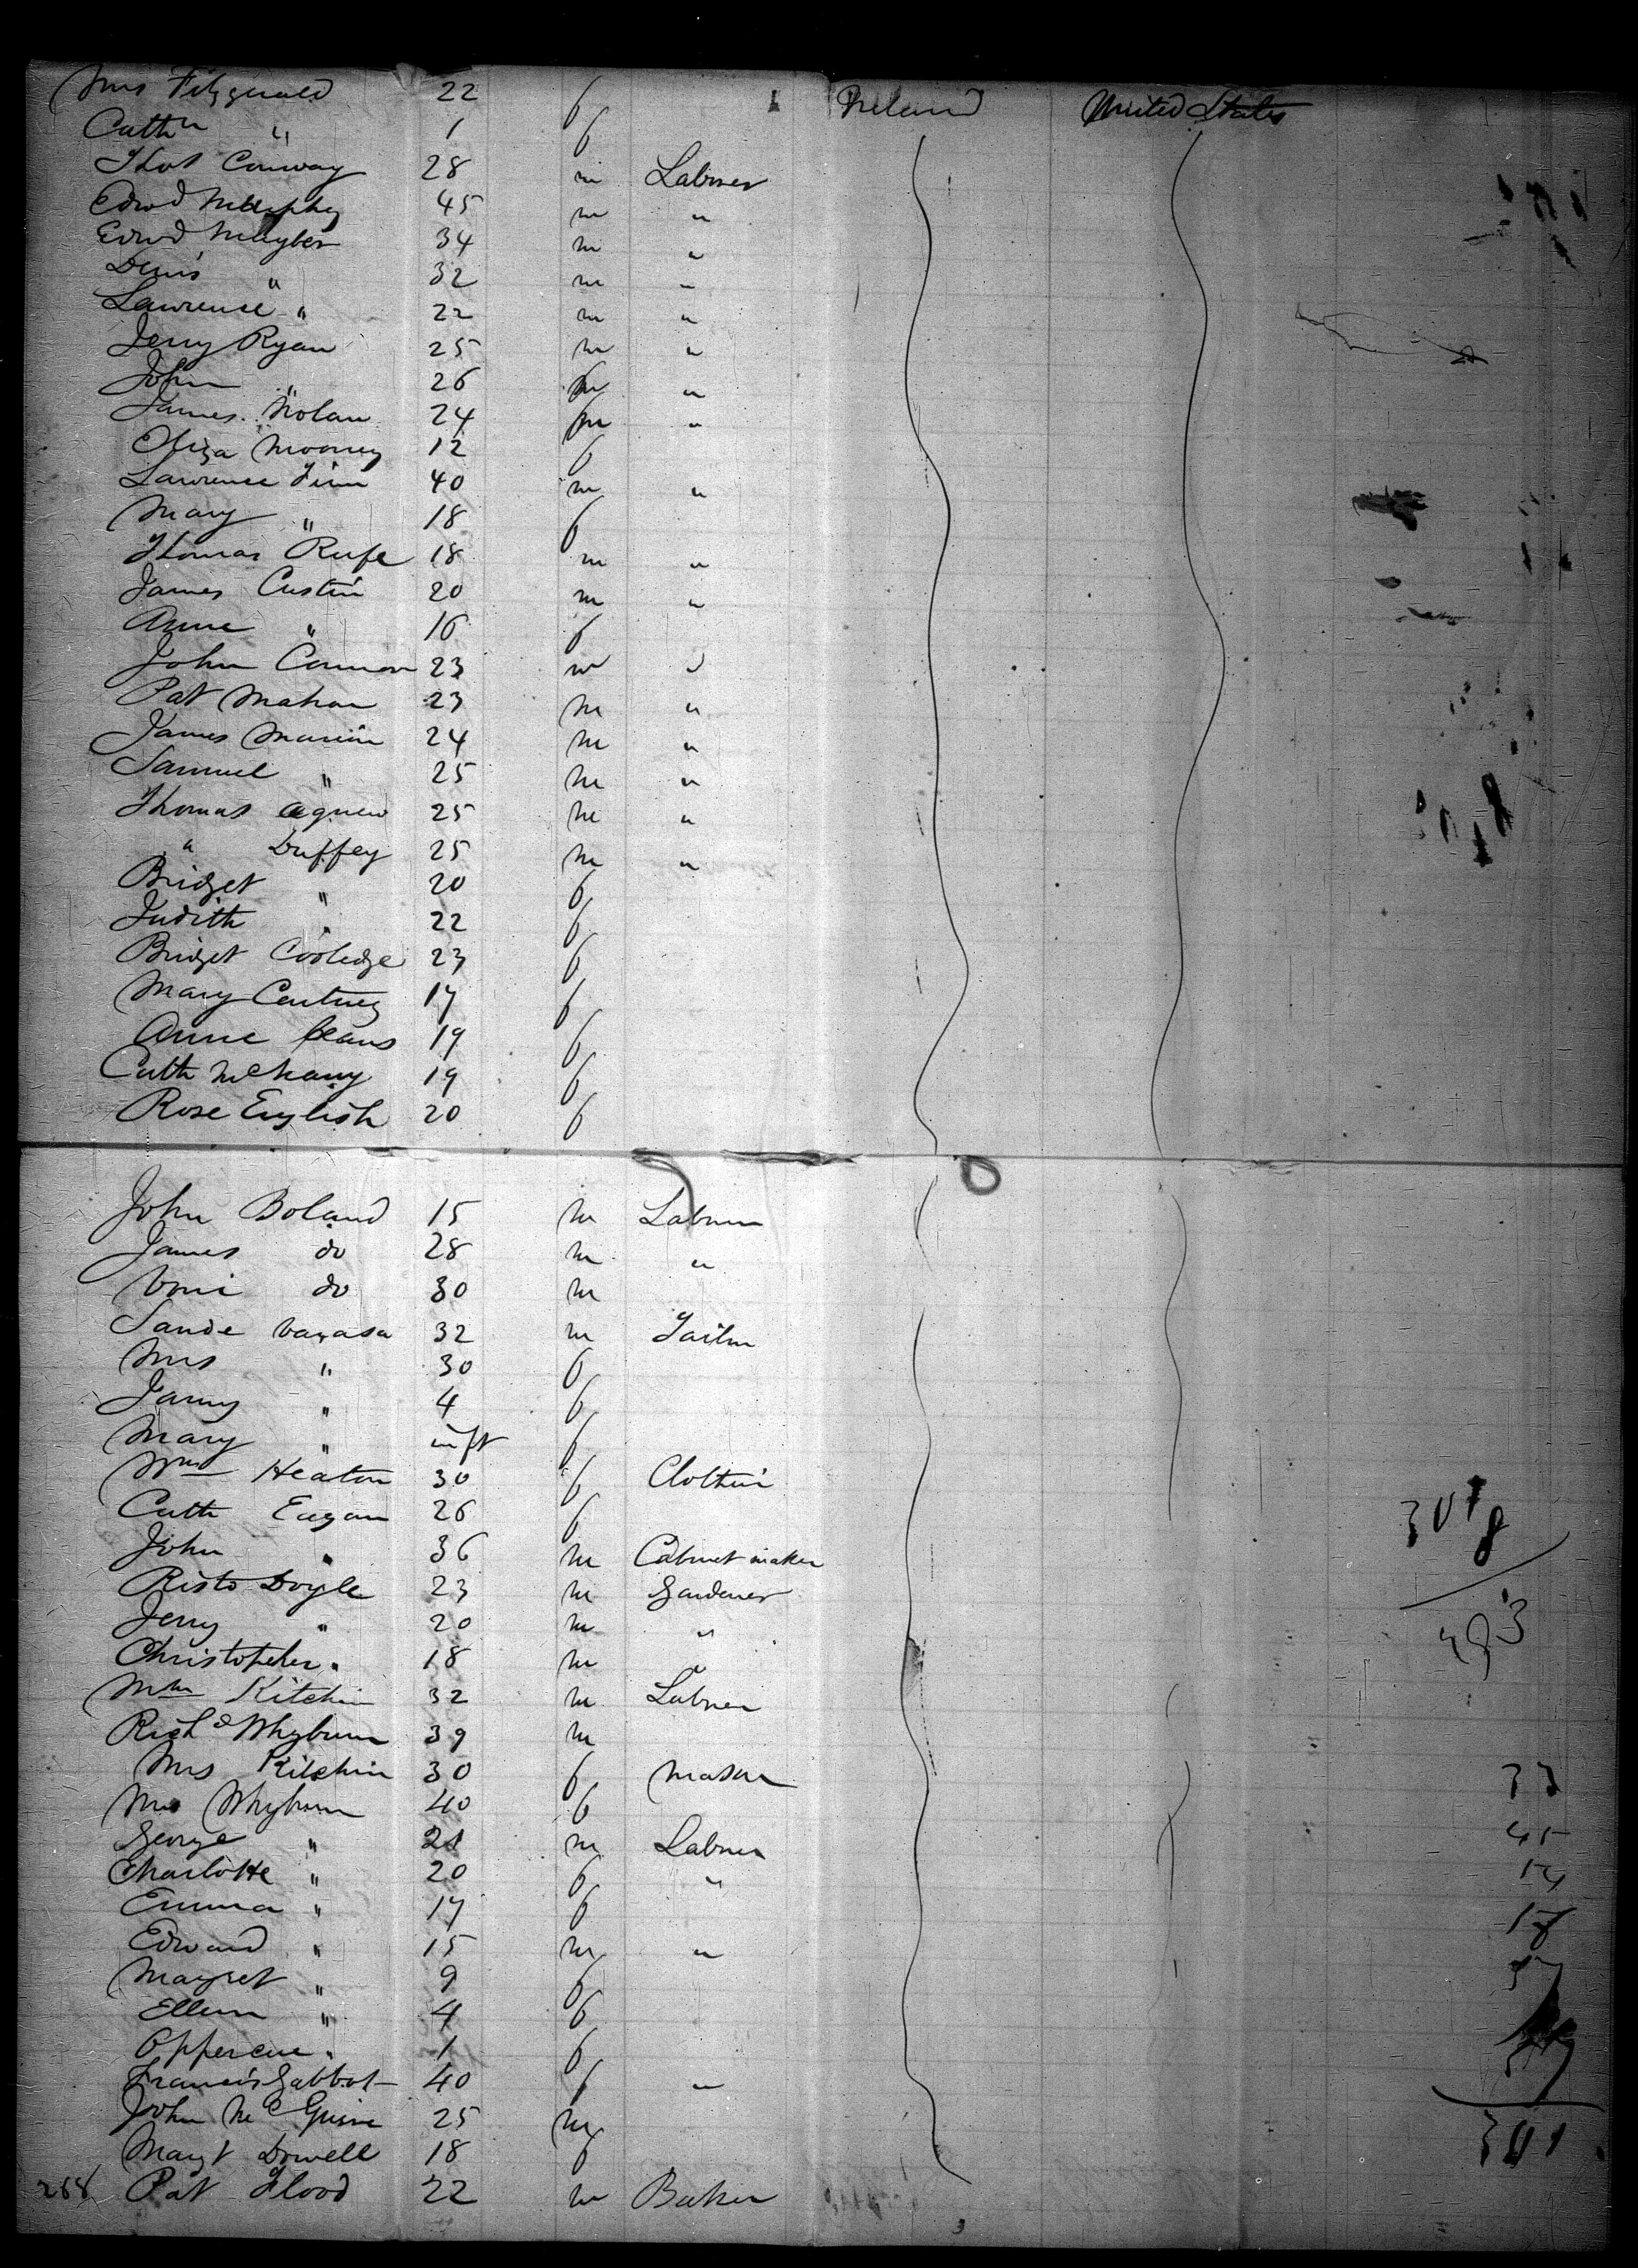 Mrs Fitzgerald 22 f Ireland United States
Cathn " 1 f
Thos Conway 28 m Laborer
Edwd Murphy 45 m "
Edwd 34 m "
Denis " 32 m "
Lawrence " 22 m "
Jerry Ryan 25 m "
John " 26 m "
James Nolan 24 m "
Eliza Mooney 12 f
Lawrence Finn 40 m "
Mary " 18 f
Thomas Rufe 18 m "
James Custin 20 m "
Anne " 16 f
John Cannon 23 m "
Pat Mahan 23 m "
James 24 m "
Samuel " 25 m "
Thomas Agnew 25 m "
" Duffey 25 m "
Bridget " 20 f
Judith " 22 f
Bridget Cooledge 23 f
Mary 17 f
Anne 19 f
Cath 19 f
Rose English 20 f
John Boland 15 m Laborer
James do 28 m "
do 30 m
32 m Tailor
Mrs " 30 f
" 4 f
Mary " inft f
Heaton 30 f
Cath Eagan 26 f
John " 36 m Cabinet maker
Doyle 23 m Gardener
Jerry " 20 m "
Christopher " 18 m "
Kitchin 32 m Laborer
Richd Whyburn 39 m
Mrs Kitchin 30 f Mason
Mrs Whyburn 40 f
George " 21 m Laborer
Charlotte " 20 f "
Emma " 17 f
Edward " 15 m "
Magret " 9 f
Ellen " 4 f
" 1 f
Francis Gabbot 40 f "
John McGuire 25 m
Magt Dowell 18 f
268 Pat Flood 22 m Baker